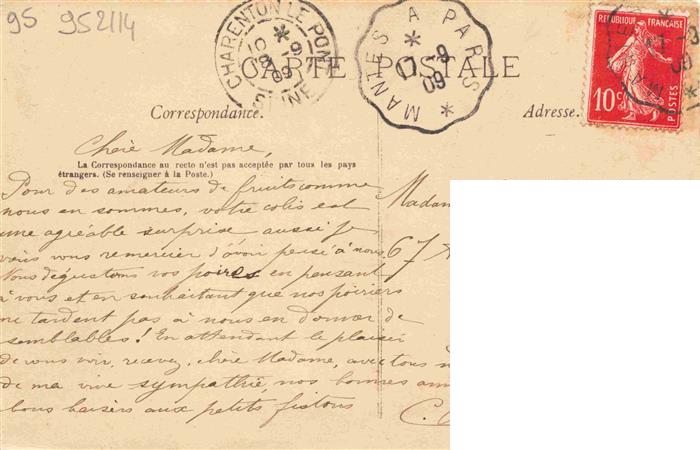 95 952114
CHARENTON LE PONT
SEINE
MANTES A PARIS
17-9
09
REPUBLIQUE FRANÇAISE
10c
POSTES
CARTE POSTALE
Correspondance.
Adresse.
Chère Madame,
La Correspondance au recto n'est pas acceptée par tous les pays
étrangers. (Se renseigner à la Poste.)
Pour des amateurs de fruits comme
nous en sommes, votre colis est
une agréable surprise aussi je
viens vous remercier d'avoir pensé à nous.
Nous dégustons vos poires en pensant
à vous et en souhaitant que nos poiriers
ne tardent pas à nous en donner de
semblables! En attendant le plaisir
de vous voir, recevez, chère Madame, avec tous
de ma vive sympathie, nos bonnes
bons baisers aux petits fistons
Madam
67
C.